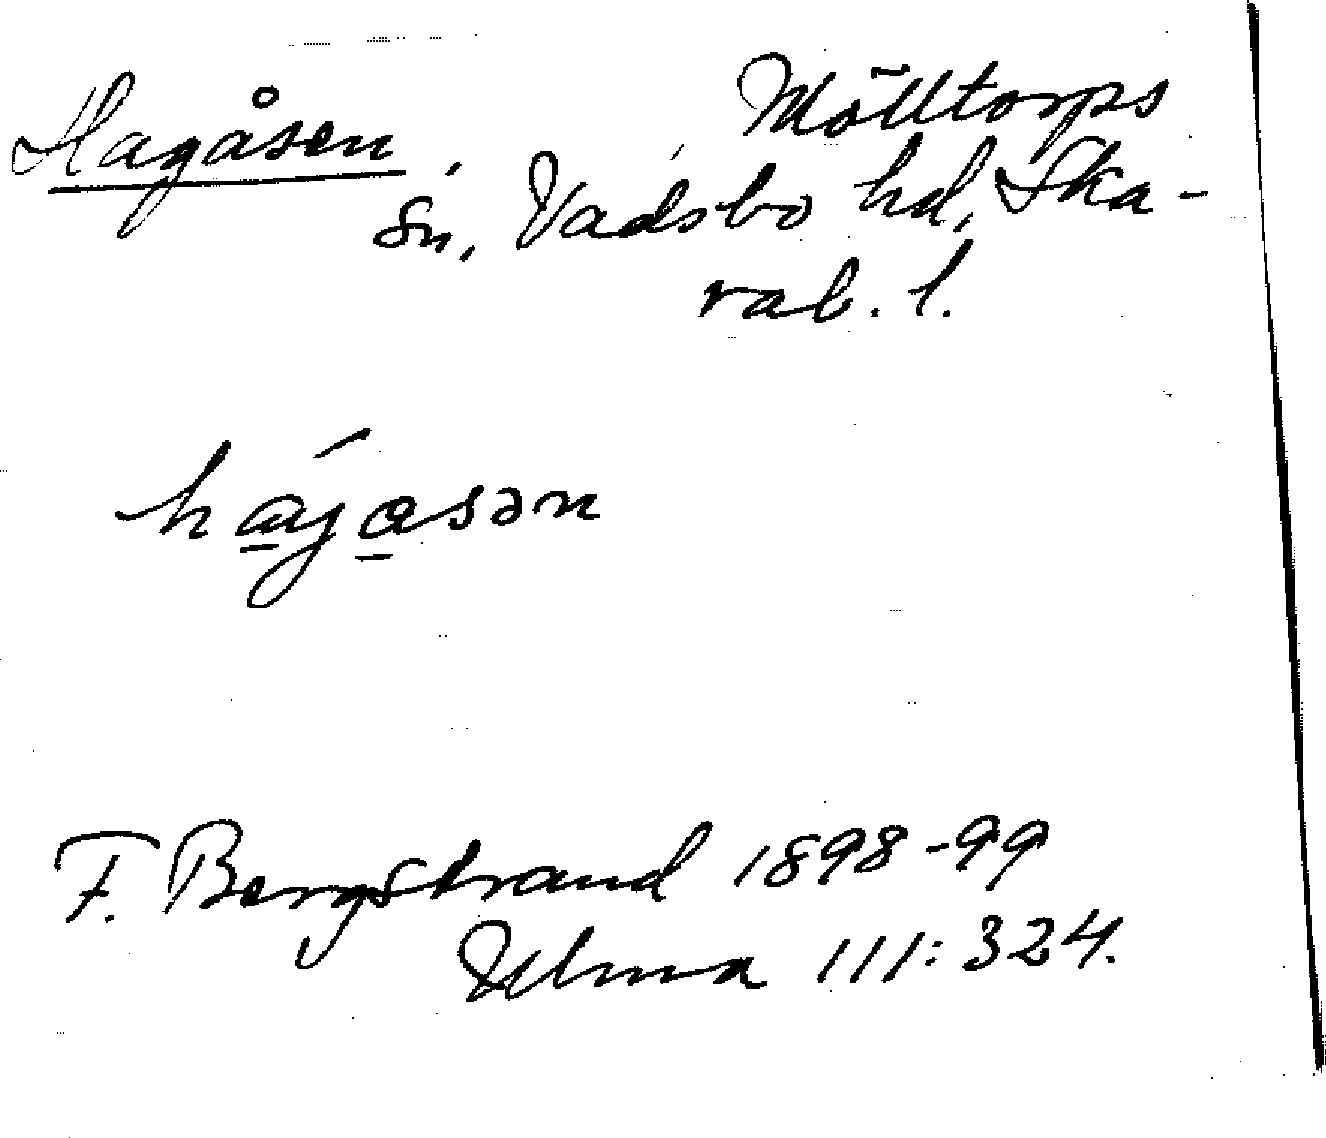 Hagåsen, Mölltorps
sn, Vadsbo hd, Ska-
rab. l.
F. Bergstrand 1898-99
Ulma 111:324.